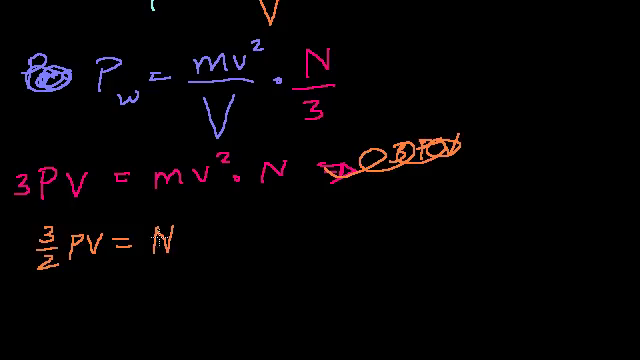 V
P_w = mv²/V · N/3
3PV = mv² · N
3/2 PV = N